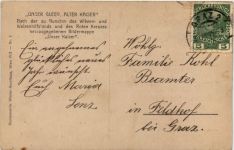 „UNSER GUTER, ALTER KAISER"
Nach der zu Gunsten des Witwen- und
Waisenhilfsfonds und des Roten Kreuzes
herausgegebenen Bildermappe
„Unser Kaiser".
Ein
Glückliches neues
Jahr wünscht
Euch Maria
Wohlg.
Familie Kohl
Beamter
in Feldhof
bei Graz.
5